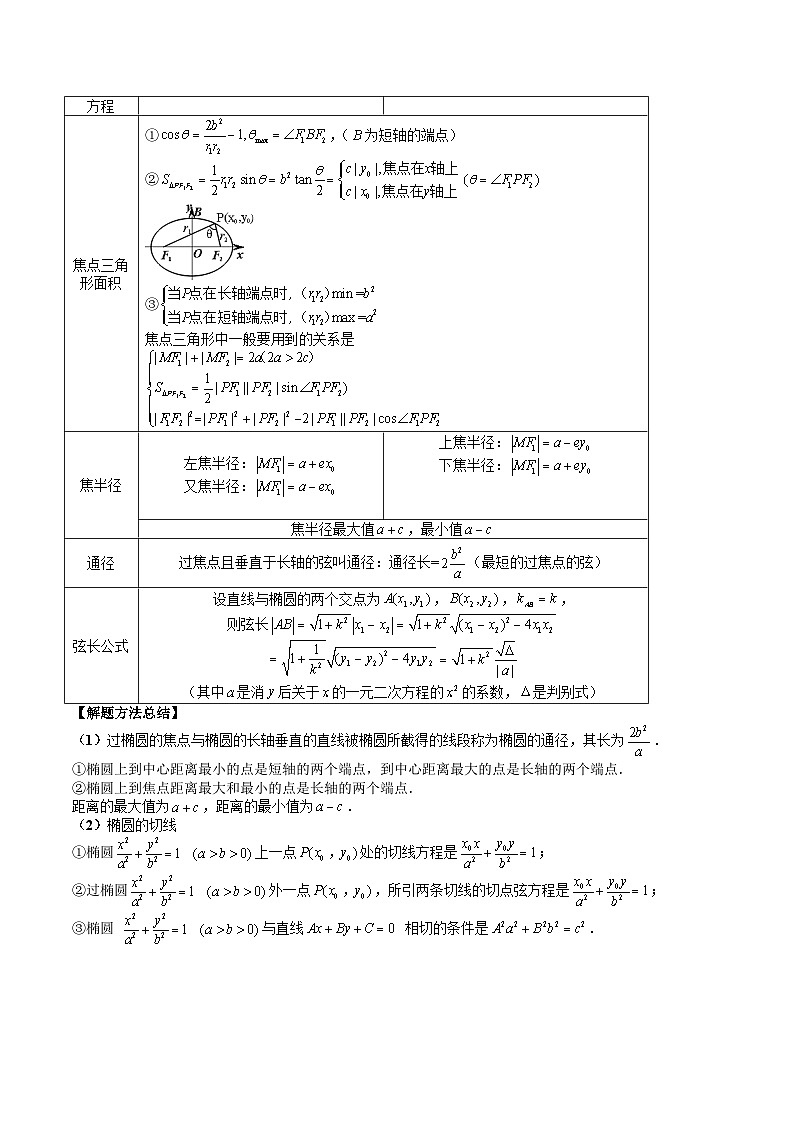 方程
焦点三角形面积
① cosθ = 2b²/(r₁r₂) − 1, θmax = ∠F₁BF₂ ,（ B 为短轴的端点）
② S△PF₁F₂ = 1/2 r₁r₂ sinθ = b² tan θ/2 = { c|y₀|,焦点在x轴上
c|x₀|,焦点在y轴上 (θ = ∠F₁PF₂)
y B P(x₀,y₀)
r₁ θ r₂
F₁ O F₂ x
③ { 当P点在长轴端点时,（r₁r₂）min =b²
当P点在短轴端点时,（r₁r₂）max =a²
焦点三角形中一般要用到的关系是
{ |MF₁|+|MF₂|= 2a(2a > 2c）
S△PF₁F₂ = 1/2 |PF₁||PF₂|sin∠F₁PF₂)
|F₁F₂|²=|PF₁|²+|PF₂|²−2|PF₁||PF₂|cos∠F₁PF₂
焦半径
左焦半径：|MF₁| = a + ex₀
又焦半径：|MF₁| = a − ex₀
上焦半径：|MF₁| = a − ey₀
下焦半径：|MF₁| = a + ey₀
焦半径最大值 a + c ，最小值 a − c
通径
过焦点且垂直于长轴的弦叫通径：通径长= 2 b²/a （最短的过焦点的弦）
弦长公式
设直线与椭圆的两个交点为 A(x₁,y₁) ， B(x₂,y₂) ， kAB = k ，
则弦长 |AB| = √(1+k²) |x₁ − x₂| = √(1+k²) √((x₁ − x₂)² − 4x₁x₂)
= √(1+1/k²) √((y₁ − y₂)² − 4y₁y₂) = √(1+k²) √Δ/|a|
（其中 a 是消 y 后关于 x 的一元二次方程的 x² 的系数， Δ 是判别式）
【解题方法总结】
（1）过椭圆的焦点与椭圆的长轴垂直的直线被椭圆所截得的线段称为椭圆的通径，其长为 2b²/a ．
①椭圆上到中心距离最小的点是短轴的两个端点，到中心距离最大的点是长轴的两个端点．
②椭圆上到焦点距离最大和最小的点是长轴的两个端点．
距离的最大值为 a + c ，距离的最小值为 a − c ．
（2）椭圆的切线
①椭圆 x²/a² + y²/b² = 1 (a > b > 0) 上一点 P(x₀ ，y₀) 处的切线方程是 x₀x/a² + y₀y/b² = 1 ；
②过椭圆 x²/a² + y²/b² = 1 (a > b > 0) 外一点 P(x₀ ，y₀) ，所引两条切线的切点弦方程是 x₀x/a² + y₀y/b² = 1 ；
③椭圆 x²/a² + y²/b² = 1 (a > b > 0) 与直线 Ax + By + C = 0 相切的条件是 A²a² + B²b² = c² ．